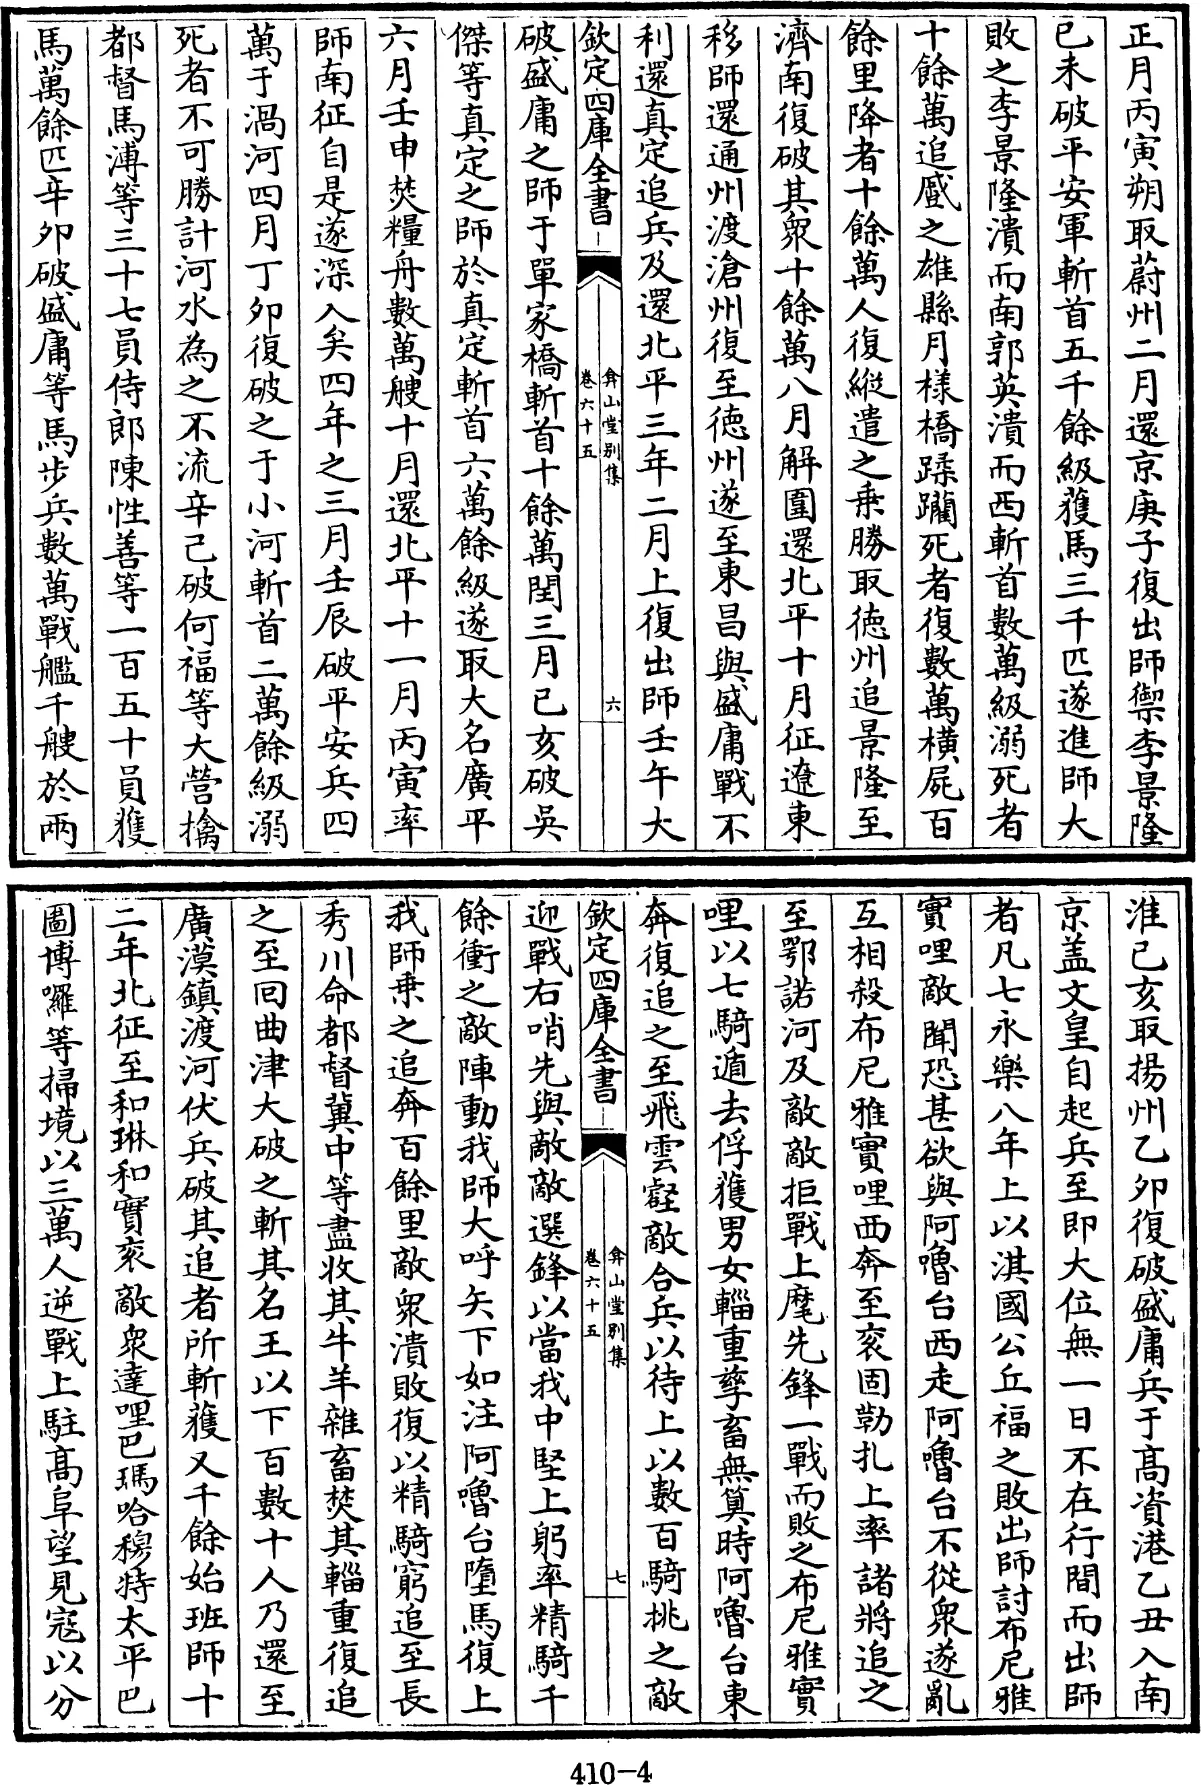 正月丙寅朔取蔚州二月還京庚子復出師禦李景隆
已未破平安軍斬首五千餘級獲馬三千匹遂進師大
敗之李景隆潰而南郭英潰而西斬首數萬級溺死者
十餘萬追感之雄縣月樣橋蹂躪死者復數萬橫屍百
餘里降者十餘萬人復縱遣之乗勝取徳州追景隆至
濟南復破其衆十餘萬八月解圍還北平十月征遼東
移師還通州渡滄州復至徳州遂至東昌與盛庸戰不
利還真定追兵及還北平三年二月上復出師壬午大
欽定四庫全書
弇山堂别集
卷六十五
六
破盛庸之師于單家橋斬首十餘萬閏三月已亥破吳
傑等真定之師於真定斬首六萬餘級遂取大名廣平
六月壬申焚糧舟數萬艘十月還北平十一月丙寅率
師南征自是遂深入矣四年之三月壬辰破平安兵四
萬于渦河四月丁夘復破之于小河斬首二萬餘級溺
死者不可勝計河水為之不流辛已破何福等大營擒
都督馬溥等三十七員侍郎陳性善等一百五十員獲
馬萬餘匹辛夘破盛庸等馬步兵數萬戰艦千艘於兩
淮已亥取揚州乙夘復破盛庸兵于髙資港乙丑入南
京盖文皇自起兵至即大位無一日不在行間而出師
者凡七永樂八年上以淇國公丘福之敗出師討布尼雅
實哩敵聞恐甚欲與阿嚕台西走阿嚕台不從衆遂亂
互相殺布尼雅實哩西奔至衮固勒扎上率諸將追之
至鄂諾河及敵敵拒戰上麾先鋒一戰而敗之布尼雅實
哩以七騎遁去俘獲男女輜重孳畜無筭時阿嚕台東
奔復追之至飛雲壑敵合兵以待上以數百騎挑之敵
欽定四庫全書
弇山堂别集
卷六十五
七
迎戰右哨先與敵敵選鋒以當我中堅上躬率精騎千
餘衝之敵陣動我師大呼矢下如注阿嚕台墮馬復上
我師乗之追奔百餘里敵衆潰敗復以精騎窮追至長
秀川命都督冀中等盡收其牛羊雜畜焚其輜重復追
之至囘曲津大破之斬其名王以下百數十人乃還至
廣漠鎮渡河伏兵破其追者所斬獲又千餘始班師十
二年北征至和琳和實衮敵衆達哩巴瑪哈穆特太平巴
圖博囉等掃境以三萬人逆戰上駐髙阜望見寇以分
410-4